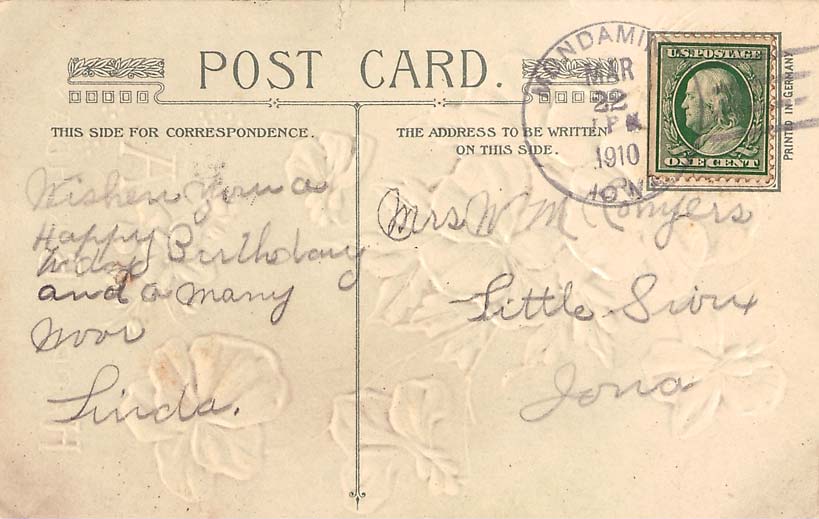 POST CARD.
THIS SIDE FOR CORRESPONDENCE.
THE ADDRESS TO BE WRITTEN
ON THIS SIDE.
MONDAMIN
MAR
22
1 PM
1910
IOWA
U.S. POSTAGE
ONE CENT
PRINTED IN GERMANY
Wishen You a
Happy
Birthday
and a many
moor
Linda.
Mrs W M Conyers
Little Sioux
Iowa